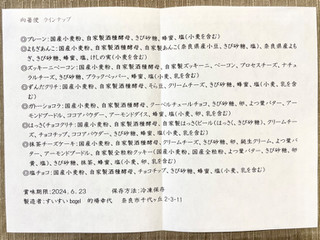 的場便 ラインナップ
◎プレーン：国産小麦粉、自家製酒種酵母、きび砂糖、蜂蜜、塩(小麦を含む)
◎よもぎあんこ：国産小麦粉、自家製酒種酵母、自家製あんこ(奈良県産小豆、きび砂糖、塩)、奈良県産よも
ぎ、きび砂糖、蜂蜜、塩、けしの実(小麦を含む)
◎ズッキーニベーコン：国産小麦粉、自家製酒種酵母、自家製ズッキーニ、ベーコン、プロセスチーズ、ナチュ
ラルチーズ、きび砂糖、ブラックペッパー、蜂蜜、塩(小麦、乳を含む)
◎ずんだグリチ：国産小麦粉、自家製酒種酵母、そら豆、クリームチーズ、きび砂糖、蜂蜜、塩(小麦、乳を含
む)
◎ガトーショコラ：国産小麦粉、自家製酒種酵母、クーベルチュールチョコ、きび砂糖、卵、よつ葉バター、アー
モンドプードル、ココアパウダー、アーモンドダイス、蜂蜜、塩(小麦、卵、乳を含む)
◎はっさくチョコグリチ：国産小麦粉、自家製酒種酵母、自家製はっさくピール(はっさく、きび砂糖)、クリームチー
ズ、チョコチップ、ココアパウダー、きび砂糖、蜂蜜、塩(小麦、乳を含む)
◎抹茶チーズケーキ：国産小麦粉、自家製酒種酵母、クリームチーズ、きび砂糖、卵、純生クリーム、よつ葉バ
ター、アーモンドプードル、自家製全粒粉クッキー(国産小麦粉、国産全粒粉、よつ葉バター、きび砂糖、卵
黄、塩)、きび砂糖、抹茶、蜂蜜、塩(小麦、卵、乳を含む)
◎塩チョコ：国産小麦粉、自家製酒種酵母、チョコチップ、きび砂糖、蜂蜜、塩(小麦、乳を含む)
賞味期限：2024.6.23 保存方法：冷凍保存
製造者：すいすいbagel 的場幸代 奈良市千代ヶ丘2-3-11